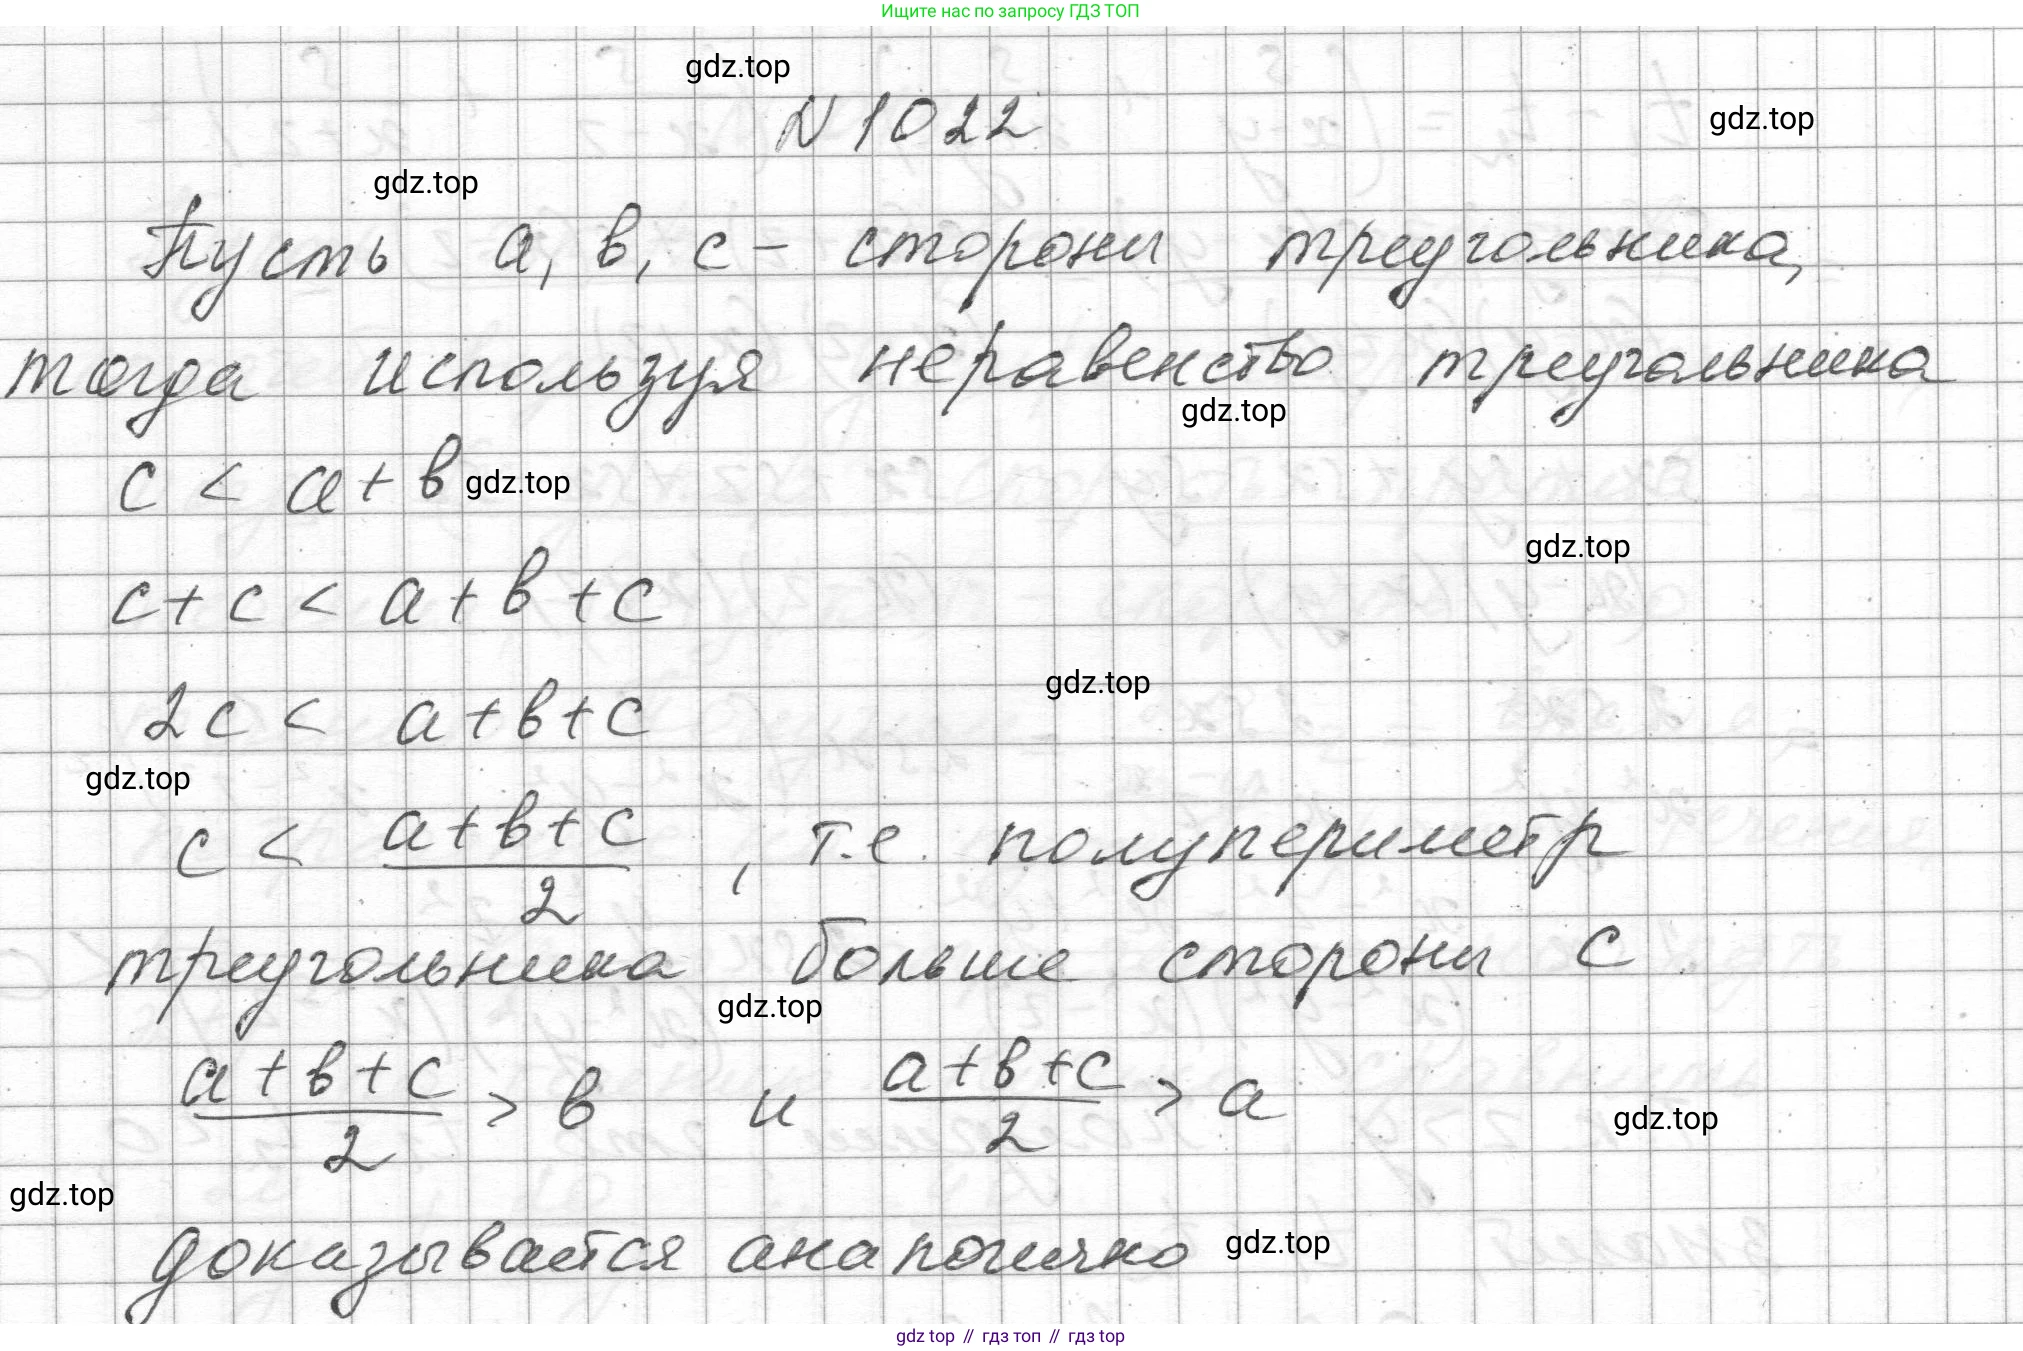 Ищите нас по запросу ГДЗ ТОП
gdz.top
N 1022
gdz.top
gdz.top
Пусть a, b, c - стороны треугольника,
тогда используя неравенство треугольника
gdz.top
c < a + b gdz.top
gdz.top
c + c < a + b + c
gdz.top
2c < a + b + c
gdz.top
c < (a + b + c)/2 , т.е. полупериметр
треугольника больше стороны c
gdz.top
(a + b + c)/2 > b и (a + b + c)/2 > a
gdz.top
gdz.top
доказывается аналогично gdz.top
gdz top // гдз топ // гдз top